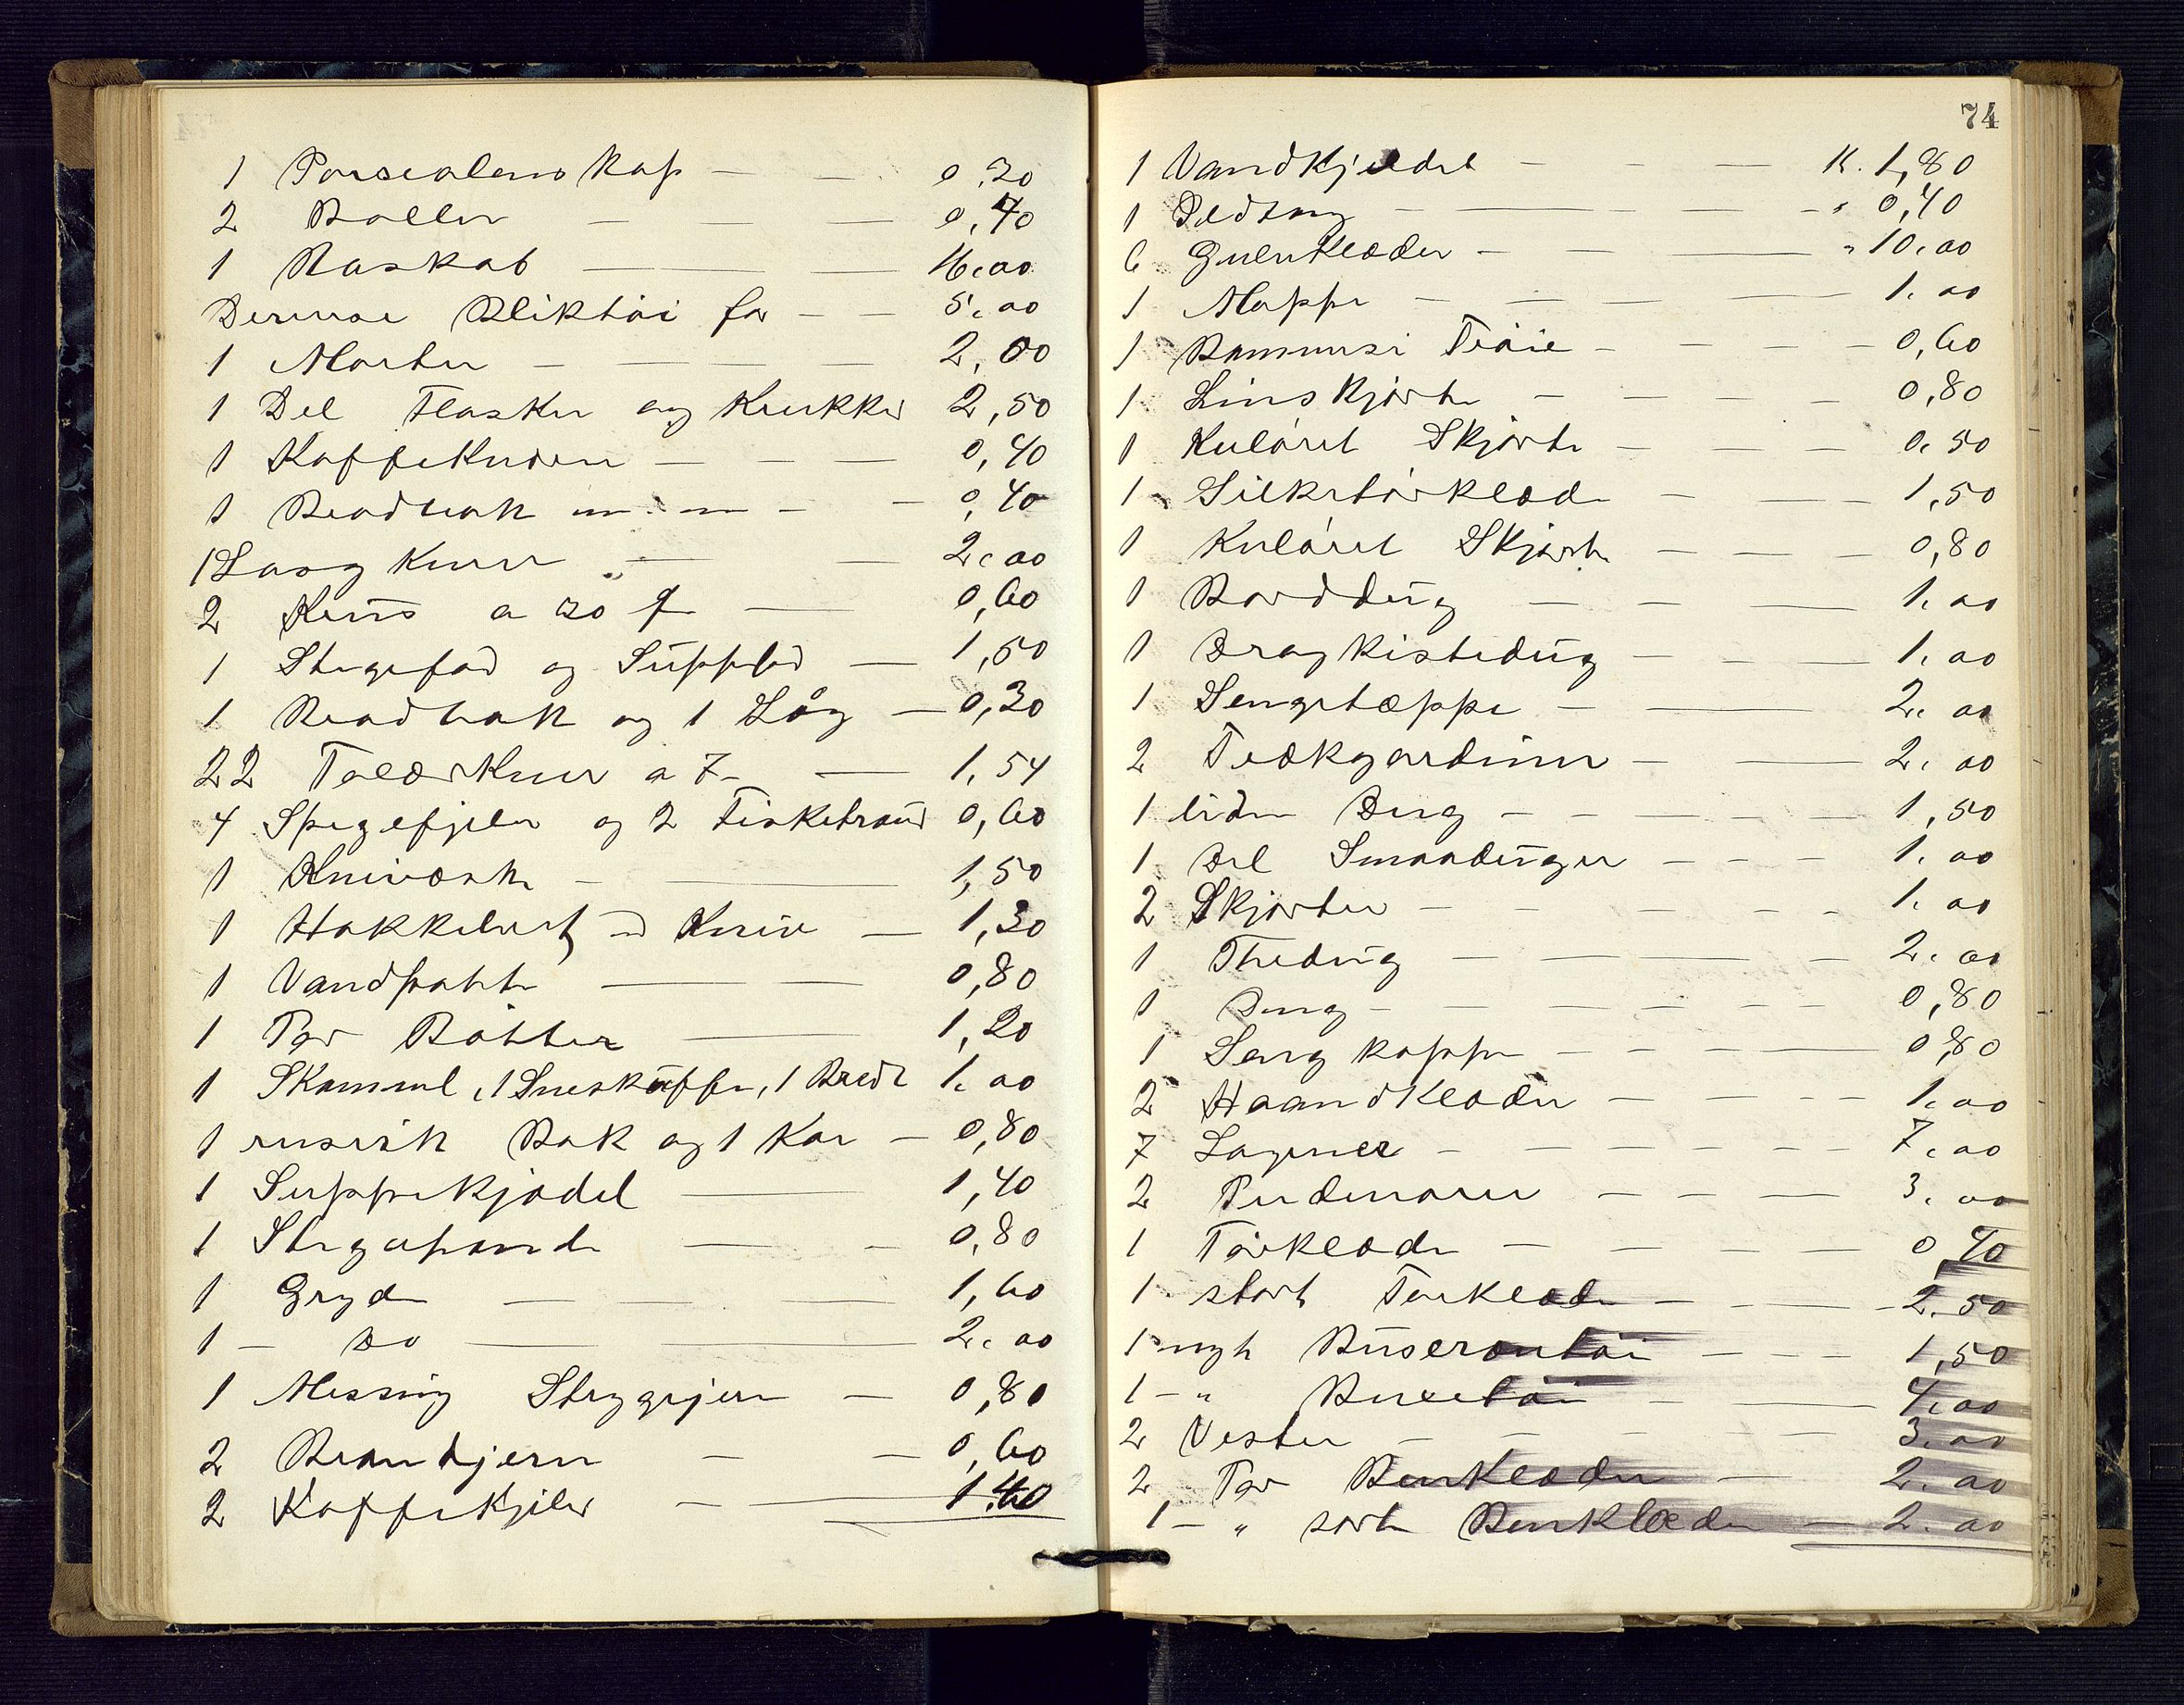 1 Porselens Kop — — 0.20
2 Boller — — — 0,40
1 — — — 16.00
Diverse Bliktøi for — — 5.00
1 Morter — — — 2,00
1 Del Flasker og Krukker 2,50
1 Kaffekvern — — — 0,40
1 Brødbak — 0,40
1 Kurv — — 2.00
2 Krus a 30 ø — 0,60
1 Stegefad og Suppefad — 1,50
1 Brødbak og 1 Låg — 0,30
22 Talærkner a 7 — 1,54
4 Spegefjeler og 2 0,60
1 Kniveske — — 1,50
1 Hakkebret og Kniv — 1,30
1 Vandpotte — — 0,80
1 Par Bøtter — 1,20
1 Skammel, 1 Sneskuffe, 1 Bret 1.00
1 russisk Bak og 1 Kar — 0,80
1 Suppekjedel — 1,40
1 Stegepande — — 0,80
1 Gryde — — — 1,60
1 — Do — — 2.00
1 Messing Strygejern — 0,80
2 Brandjern — — 0,60
2 Kaffekjeler — — 1.40
74
1 Vandkjedel — — — K. 1,80
1 Ildtang — — — — " 0,40
6 Gulvklæder — — — " 10.00
1 Moppe — — — — 1.00
1 Bommusi Trøie — — — — 0,60
1 Linskjorte — — — — 0,80
1 Kuløret Skjorte — — — 0.50
1 Silketørklæde — — — 1,50
1 Kuløret Skjorte — — — 0,80
1 Borddug — — — 1.00
1 Dragkistedug — — — 1.00
1 Sengetæppe — — 2.00
2 Trækgardiner — — 2.00
1 liden Dug — — — — 1,50
1 Del Smaaduger — — — 1.00
2 Skjorter — — — — — 1.00
1 Thedug — — — — 2.00
1 Dug — — — — — 0,80
1 Sengkappe — — — — 0,80
2 Haandklæder — — — — 1.00
7 Lagener — — — — — 7.00
2 Pudevarer — — — 3.00
1 Tørklæde — — — — 0,40
1 stort Tørklæde — — — 2.50
1 nyt Buserontøi — — — 1,50
1 — " Buxetøi — — 4.00
2 Vester — — — — 3.00
2 Par Benklæder — 2.00
1 — " sorte Benklæder — 2.00